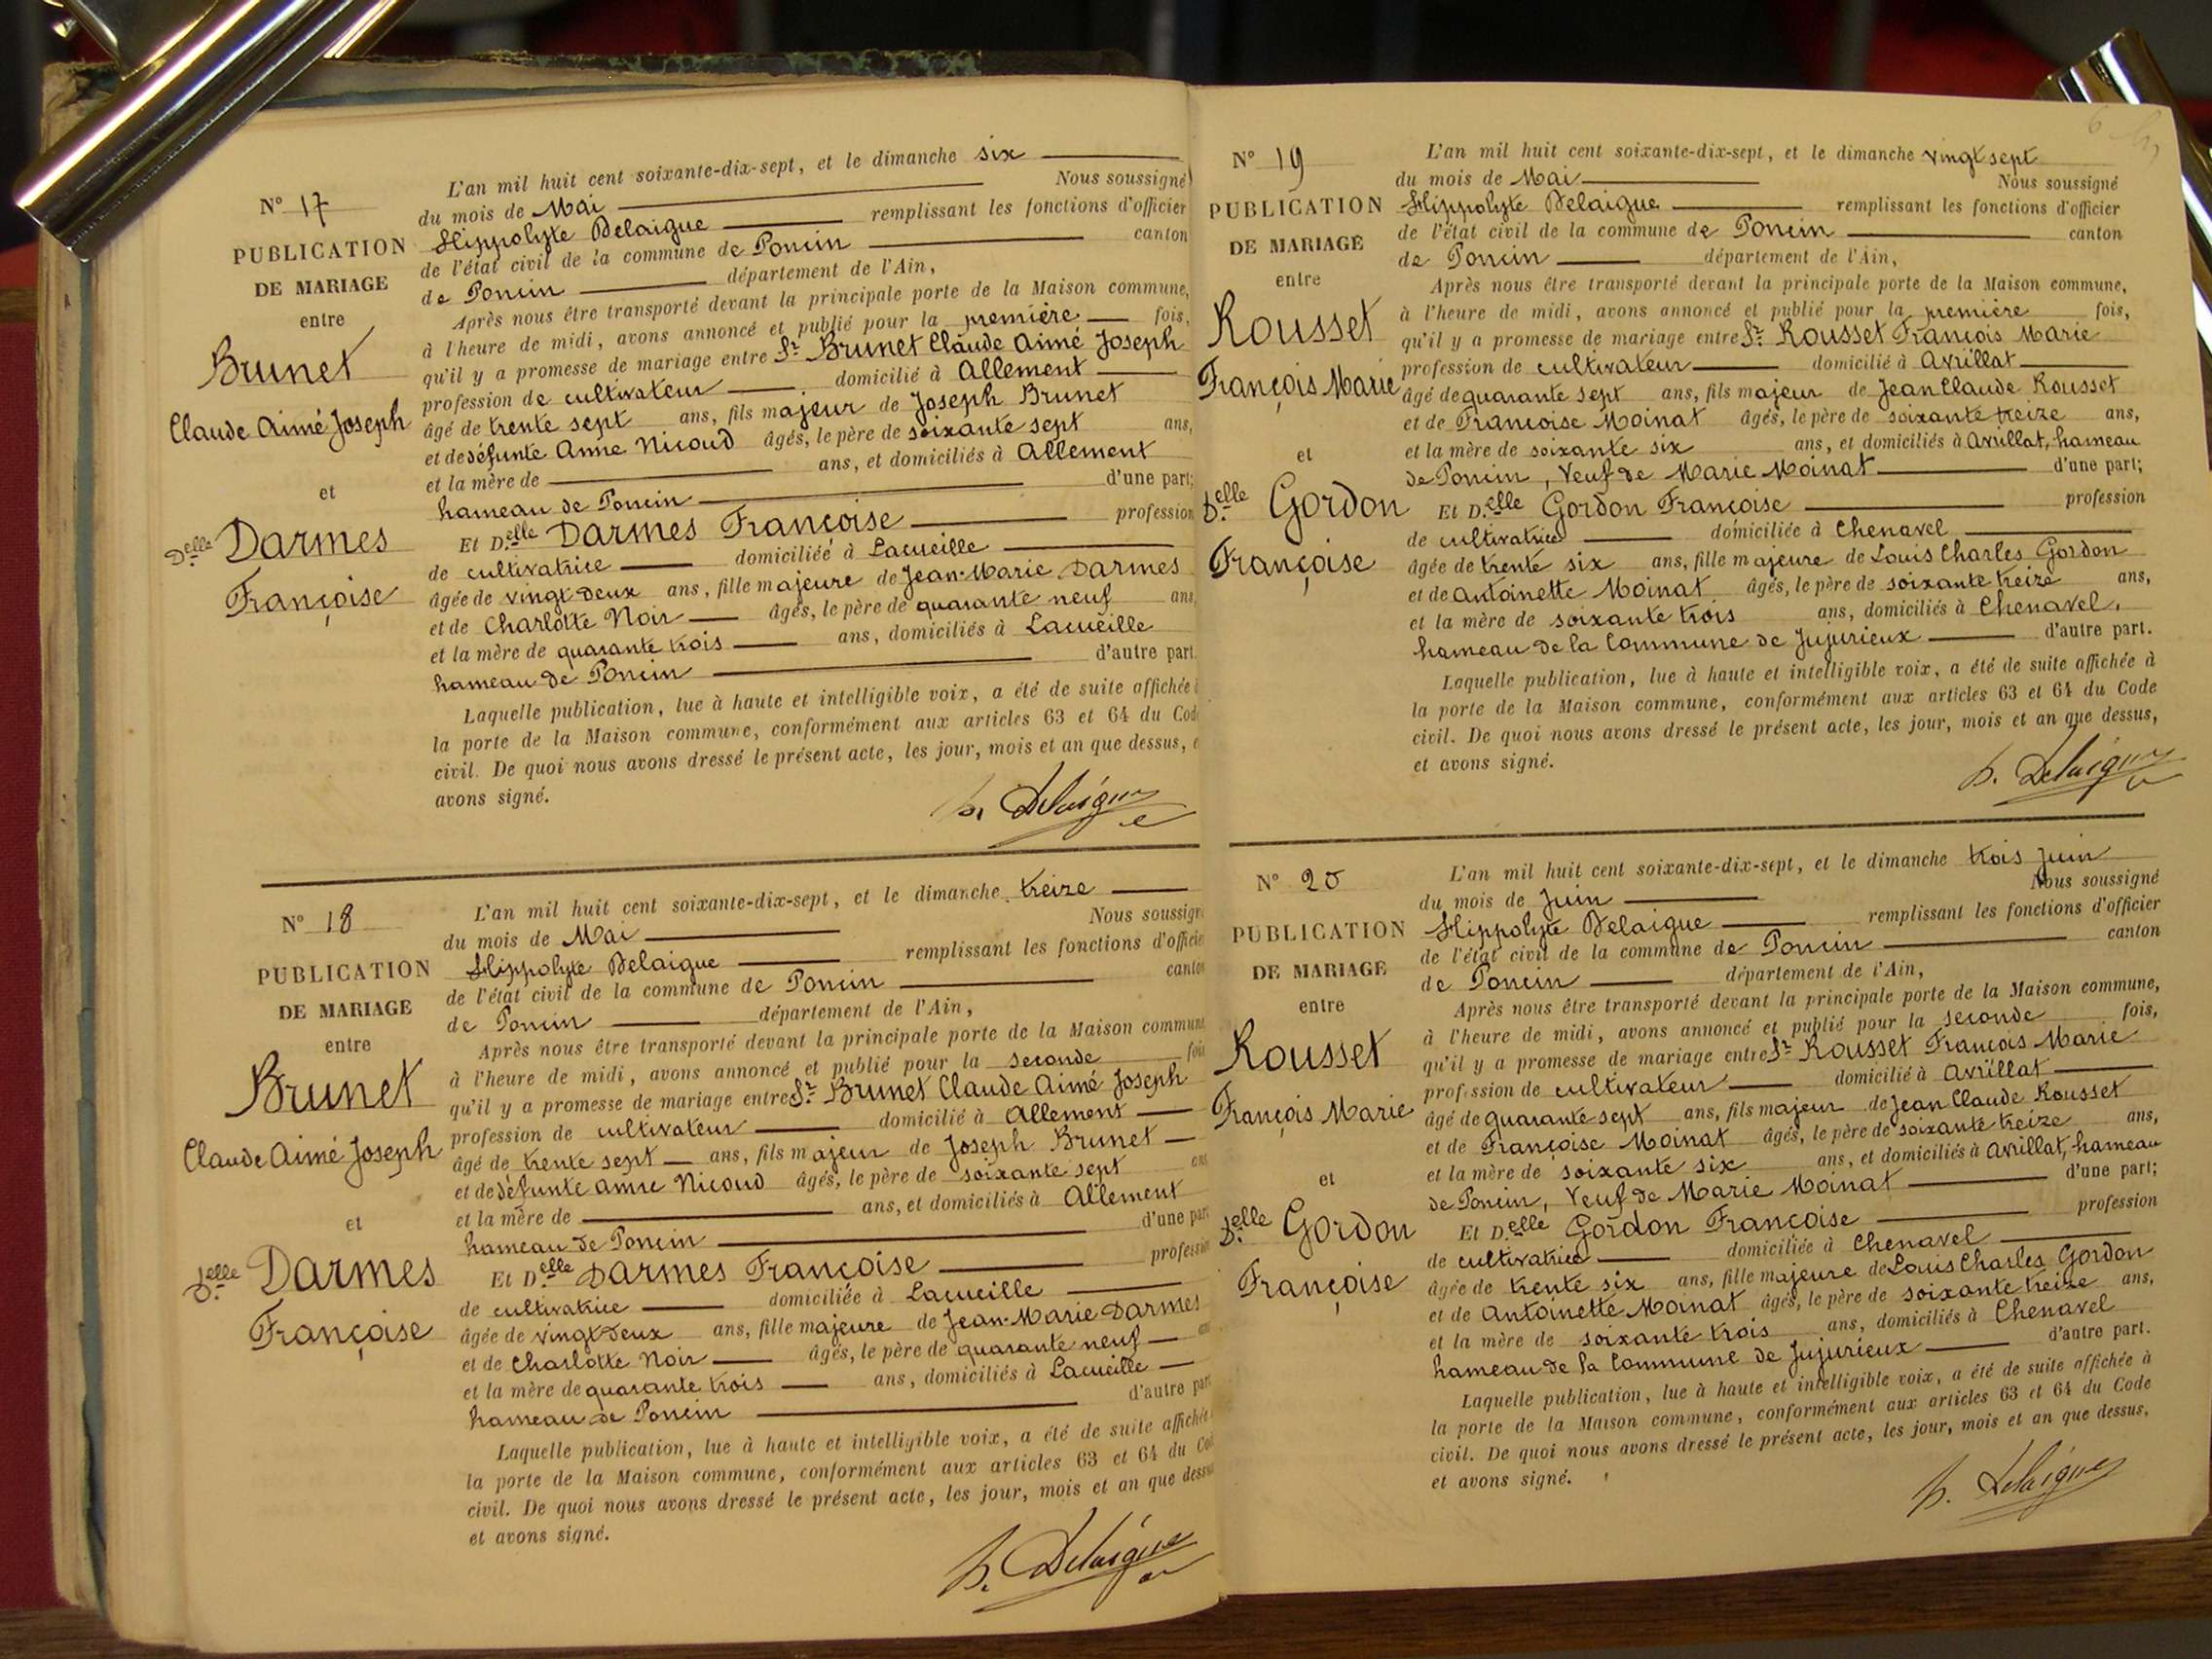 N° 17
PUBLICATION
DE MARIAGE
entre
Brunet
Claude Aimé Joseph
et
Delle Darmes
Françoise
L'an mil huit cent soixante-dix-sept, et le dimanche six
du mois de Mai Nous soussigné
Hippolyte Delaigue remplissant les fonctions d'officier
de l'état civil de la commune de Poncin canton
de Poncin département de l'Ain,
Après nous être transporté devant la principale porte de la Maison commune,
à l'heure de midi, avons annoncé et publié pour la première fois,
qu'il y a promesse de mariage entre Sr Brunet Claude Aimé Joseph
profession de cultivateur domicilié à Allement
âgé de trente sept ans, fils majeur de Joseph Brunet
et de défunte Anne Nicoud âgés, le père de soixante sept ans,
et la mère de ans, et domiciliés à Allement
hameau de Poncin d'une part;
Et D.elle Darmes Françoise profession
de cultivatrice domiciliée à Lacueille
âgée de vingt deux ans, fille majeure de Jean-Marie Darmes
et de Charlotte Noir âgés, le père de quarante neuf ans,
et la mère de quarante trois ans, domiciliés à Lacueille
hameau de Poncin d'autre part.
Laquelle publication, lue à haute et intelligible voix, a été de suite affichée à
la porte de la Maison commune, conformément aux articles 63 et 64 du Code
civil. De quoi nous avons dressé le présent acte, les jour, mois et an que dessus, e
avons signé.
h. Delaigue
N° 18
PUBLICATION
DE MARIAGE
entre
Brunet
Claude Aimé Joseph
et
Delle Darmes
Françoise
L'an mil huit cent soixante-dix-sept, et le dimanche treize
du mois de Mai Nous soussigné
Hippolyte Delaigue remplissant les fonctions d'officier
de l'état civil de la commune de Poncin canton
de Poncin département de l'Ain,
Après nous être transporté devant la principale porte de la Maison commune
à l'heure de midi, avons annoncé et publié pour la seconde fois
qu'il y a promesse de mariage entre Sr Brunet Claude Aimé Joseph
profession de cultivateur domicilié à Allement
âgé de trente sept ans, fils majeur de Joseph Brunet
et de défunte Anne Nicoud âgés, le père de soixante sept ans
et la mère de ans, et domiciliés à Allement
hameau de Poncin d'une part
Et D.elle Darmes Françoise profession
de cultivatrice domiciliée à Lacueille
âgée de vingt deux ans, fille majeure de Jean-Marie Darmes
et de Charlotte Noir âgés, le père de quarante neuf ans
et la mère de quarante trois ans, domiciliés à Lacueille
hameau de Poncin d'autre part
Laquelle publication, lue à haute et intelligible voix, a été de suite affichée
la porte de la Maison commune, conformément aux articles 63 et 64 du Code
civil. De quoi nous avons dressé le présent acte, les jour, mois et an que dessus
et avons signé.
h. Delaigue
N° 19
PUBLICATION
DE MARIAGE
entre
Rousset
François Marie
et
D.elle Gordon
Françoise
L'an mil huit cent soixante-dix-sept, et le dimanche vingt sept
du mois de Mai Nous soussigné
Hippolyte Delaigue remplissant les fonctions d'officier
de l'état civil de la commune de Poncin canton
de Poncin département de l'Ain,
Après nous être transporté devant la principale porte de la Maison commune,
à l'heure de midi, avons annoncé et publié pour la première fois,
qu'il y a promesse de mariage entre Sr Rousset François Marie
profession de cultivateur domicilié à Avrillat
âgé de quarante sept ans, fils majeur de Jean Claude Rousset
et de Françoise Moinat âgés, le père de soixante treize ans,
et la mère de soixante six ans, et domiciliés à Avrillat, hameau
de Poncin, Veuf de Marie Moinat d'une part;
Et D.elle Gordon Françoise profession
de cultivatrice domiciliée à Chenavel
âgée de trente six ans, fille majeure de Louis Charles Gordon
et de Antoinette Moinat âgés, le père de soixante treize ans,
et la mère de soixante trois ans, domiciliés à Chenavel,
hameau de la Commune de Jujurieux d'autre part.
Laquelle publication, lue à haute et intelligible voix, a été de suite affichée à
la porte de la Maison commune, conformément aux articles 63 et 64 du Code
civil. De quoi nous avons dressé le présent acte, les jour, mois et an que dessus,
et avons signé.
h. Delaigue
N° 20
PUBLICATION
DE MARIAGE
entre
Rousset
François Marie
et
D.elle Gordon
Françoise
L'an mil huit cent soixante-dix-sept, et le dimanche trois Juin
du mois de Juin Nous soussigné
Hippolyte Delaigue remplissant les fonctions d'officier
de l'état civil de la commune de Poncin canton
de Poncin département de l'Ain,
Après nous être transporté devant la principale porte de la Maison commune,
à l'heure de midi, avons annoncé et publié pour la seconde fois,
qu'il y a promesse de mariage entre Sr Rousset François Marie
profession de cultivateur domicilié à Avrillat
âgé de quarante sept ans, fils majeur de Jean Claude Rousset
et de Françoise Moinat âgés, le père de soixante treize ans,
et la mère de soixante six ans, et domiciliés à Avrillat, hameau
de Poncin, Veuf de Marie Moinat d'une part;
Et D.elle Gordon Françoise profession
de cultivatrice domiciliée à Chenavel
âgée de trente six ans, fille majeure de Louis Charles Gordon
et de Antoinette Moinat âgés, le père de soixante treize ans,
et la mère de soixante trois ans, domiciliés à Chenavel
hameau de la Commune de Jujurieux d'autre part.
Laquelle publication, lue à haute et intelligible voix, a été de suite affichée à
la porte de la Maison commune, conformément aux articles 63 et 64 du Code
civil. De quoi nous avons dressé le présent acte, les jour, mois et an que dessus,
et avons signé.
h. Delaigue